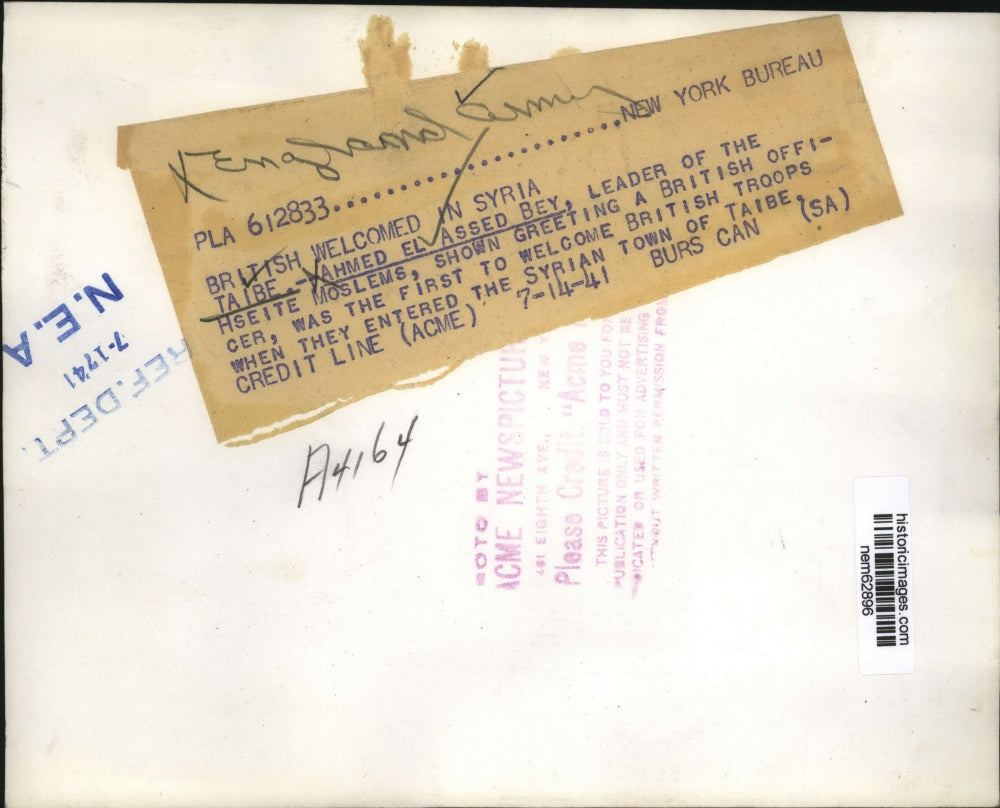 England Army
PLA 612833..............................NEW YORK BUREAU
BRITISH WELCOMED IN SYRIA
TAIBE.--AHMED EL ASSED BEY, LEADER OF THE
HSEITE MOSLEMS, SHOWN GREETING A BRITISH OFFI-
CER, WAS THE FIRST TO WELCOME BRITISH TROOPS
WHEN THEY ENTERED THE SYRIAN TOWN OF TAIBE.
CREDIT LINE (ACME) 7-14-41 BURS CAN (SA)
N.E.A
7-17 41
REF. DEPT.
A4164
BY
ACME NEWSPICTUR
461 EIGHTH AVE., NEW Y
Please Credit "Acme
THIS PICTURE IS SOLD TO YOU FO
PUBLICATION ONLY AND MUST NOT BE
OR USED FOR ADVERTISING
WRITTEN PERMISSION FROM
historicimages.com
nem62896